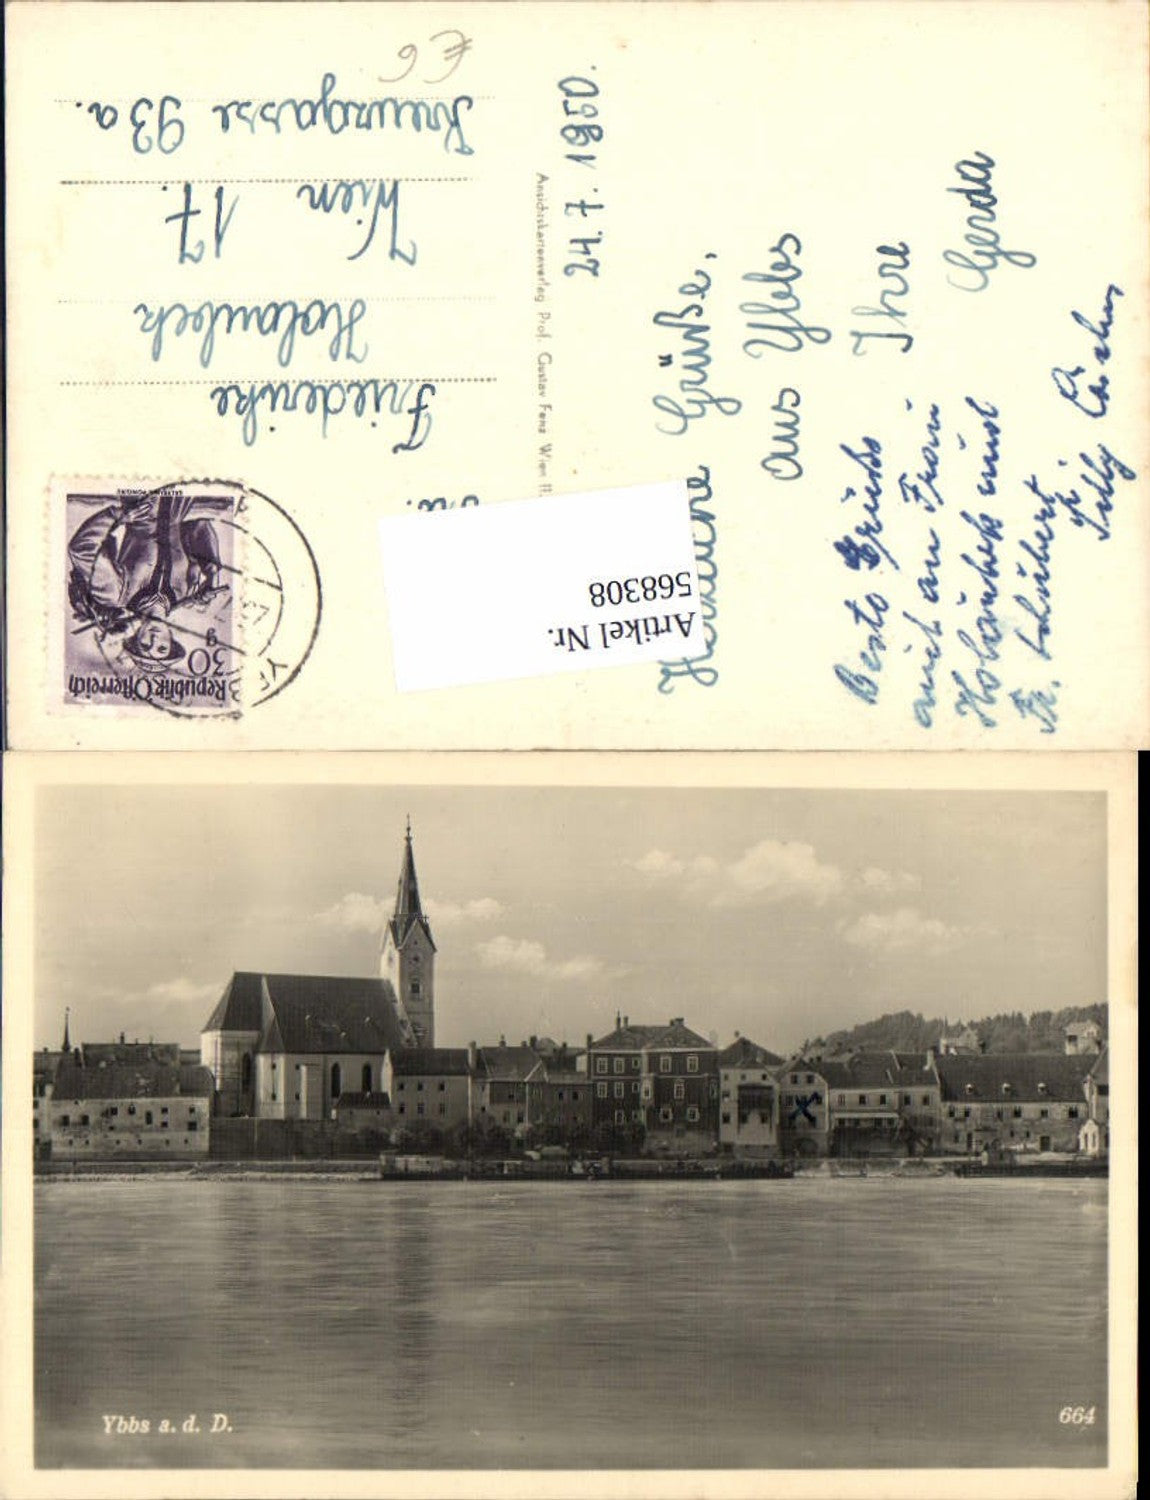 24. 7. 1950.
Herzliche Grüße,
aus Ybbs
Ihre
Gerda
Beste Grüße
auch an Frau
Holaubek und
Fr. Schubert
Friederike
Holaubek
Wien 17.
Kreuzgasse 93a.
€ 6
Ansichtskartenverlag Prof. Gustav Fenz Wien II.
Republik Österreich
30
g
Artikel Nr.
568308
Ybbs a. d. D.
664